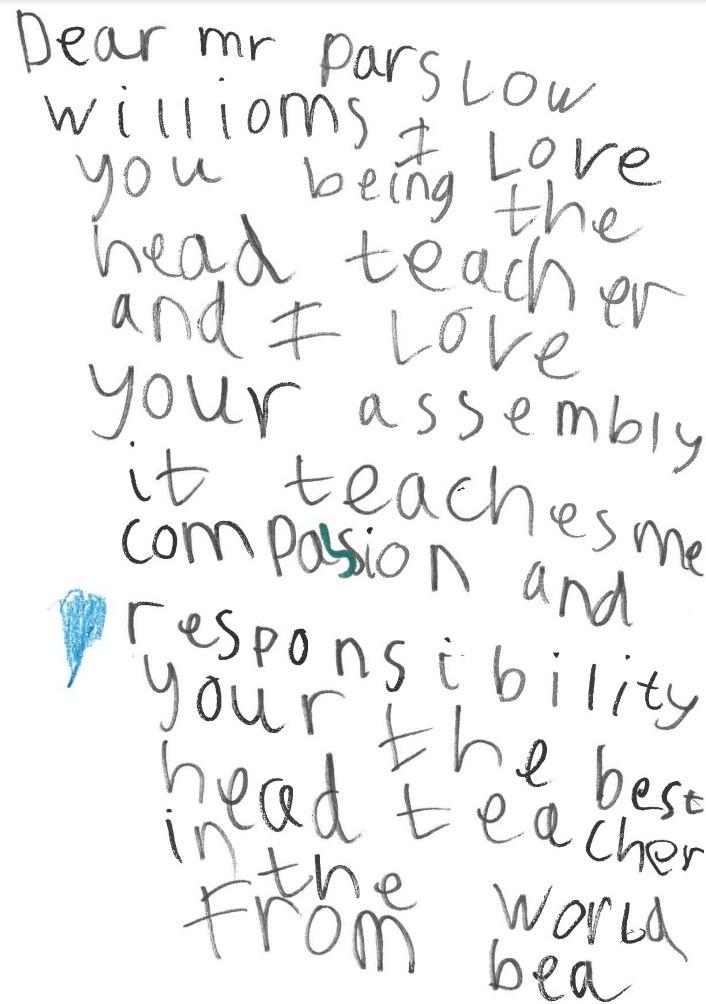 Dear mr ParsLow
willioms I Love
you being the
head teacher
and I Love
your assembly
it teaches me
comPassion and
responsibility
your the best
head teacher
in the world
From bea